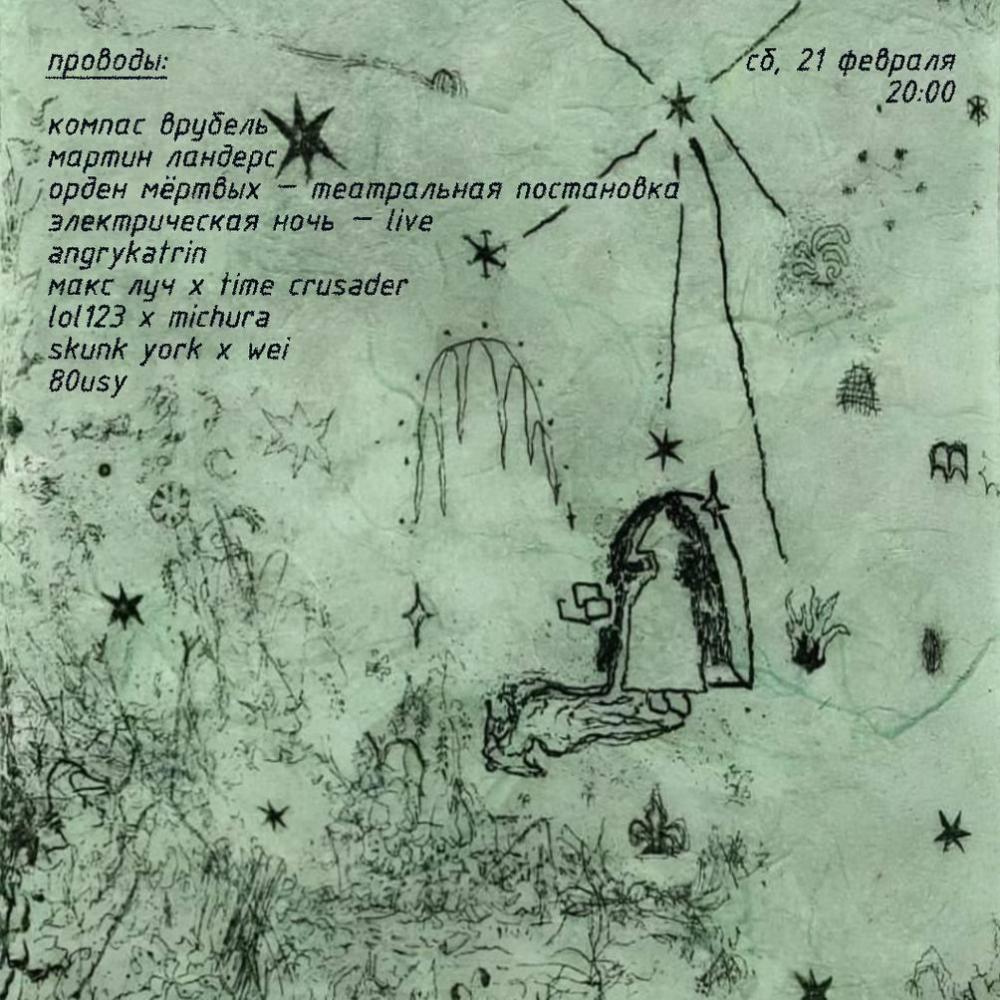 проводы:
сб, 21 февраля
20:00
компас врубель
мартин ландерс
орден мёртвых — театральная постановка
электрическая ночь — live
angrykatrin
макс луч x time crusader
lol123 x michura
skunk york x wei
80usy